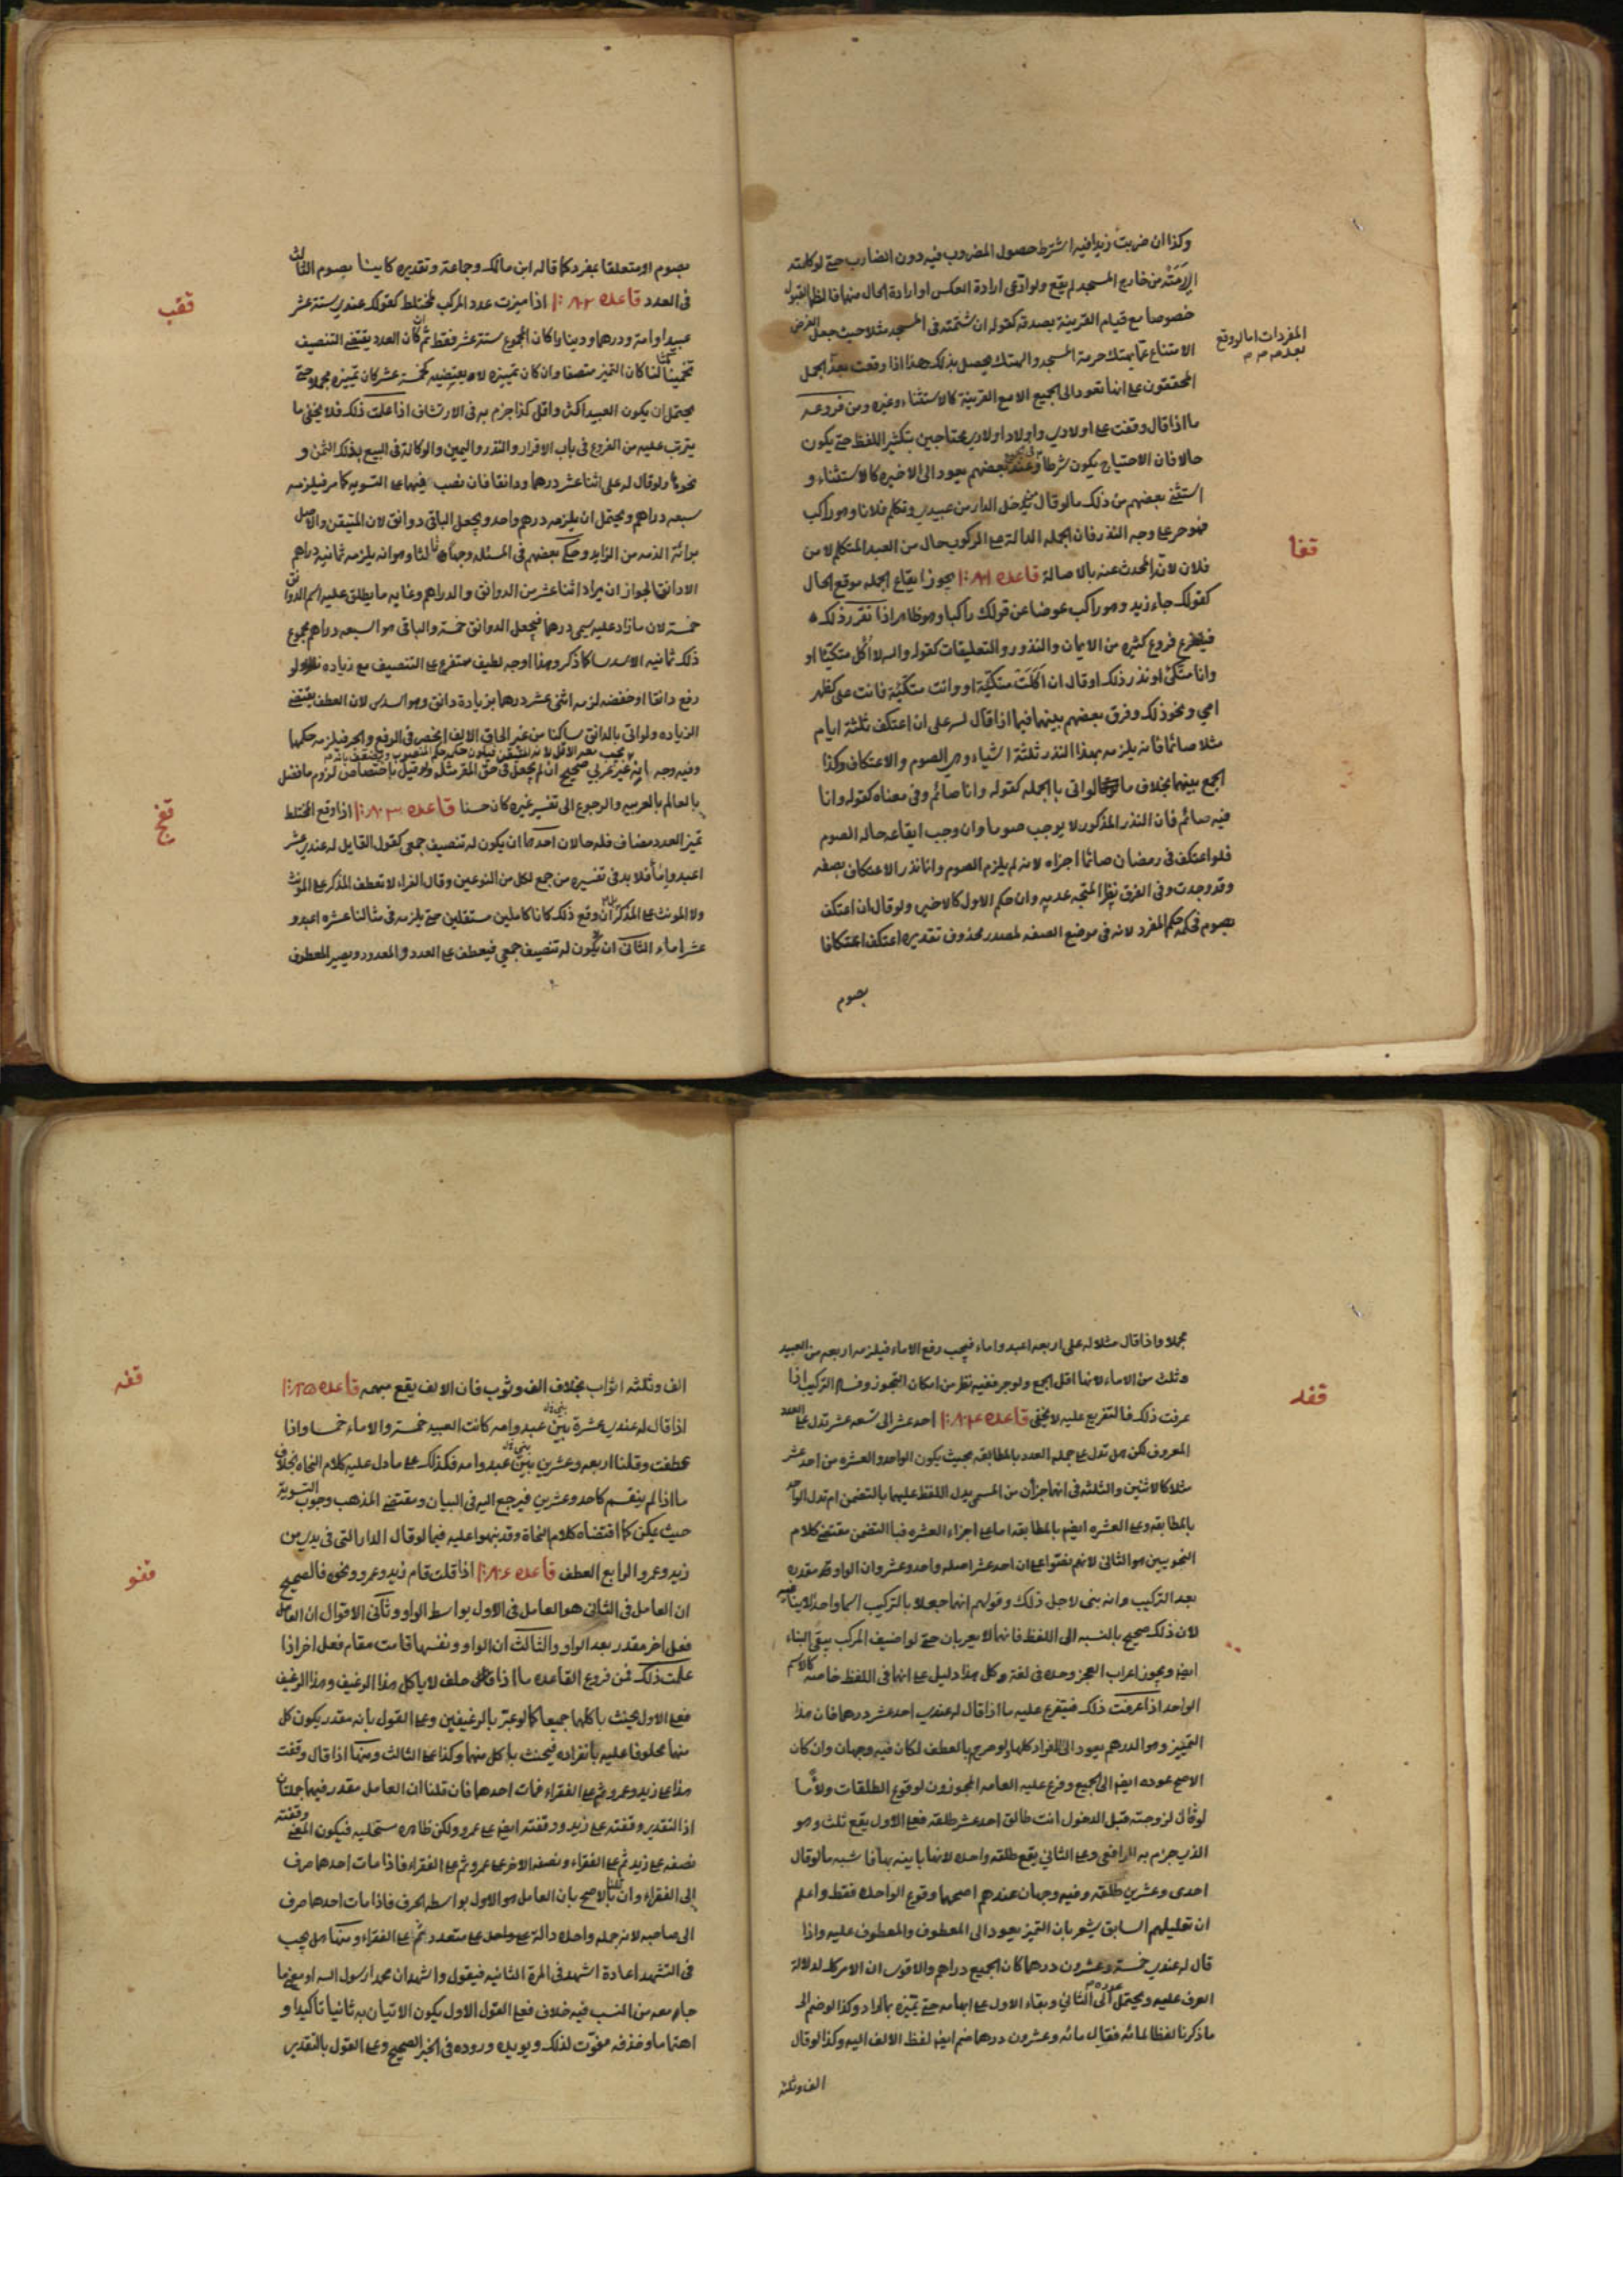 وكذا ان ضربت زيدا فيه اشترط حصول المضروب فيه دون الضارب حتى لو كانت
من خارج المسجد لم يقع ولو ادعى ارادة العكس او ارادة الحال منهما فالظاهر القبول
خصوصا مع قيام القرينة بصدقه كقوله ان شتمته فى المسجد مثلا حيث جعل الغرض
الامتناع عما يهتك حرمة المسجد والهتك يحصل بذلك هذا اذا وقعت بعد الجمل
المفردات اما لو وقع
بعد
المحققون على انها تعود الى الجميع الا مع القرينة كالاستثناء وغيره ومن فروعه
ما اذا قال وقفت على اولادى واولاد اولادى محتاجين بتكثير اللفظ حتى يكون
حالا فان الاحتياج يكون شرطا وعند بعضهم يعود الى الاخيره كالاستثناء و
استثنى بعضهم من ذلك ما لو قال من يدخل الدار من عبيدى وتكلم فلانا وهو راكب
فهو حر على وجه النذر فان الجمله الدالة على الركوب حال من العبد المتكلم لا من
فلان لانه المحدث عنه بالاصالة قاعده ١٨١ يجوز ايقاع الجمله موقع الحال
قفا
كقولك جاء زيد وهو راكب عوضا عن قولك راكبا وهو ظاهر اذا تقرر ذلك
فيتفرع فروع كثيره من الايمان والنذور والتعليقات كقوله والله لا آكل متكئا او
وانا متكئ او نذر ذلك او قال ان اكلت متكئة او وانت متكئة فانت على كظهر
امي ونحو ذلك وفرق بعضهم بينهما فيما اذا قال لله على ان اعتكف ثلثة ايام
مثلا صائما فانه يلزمه بهذا النذر ثلثة اشياء وهى الصوم والاعتكاف وكذا
الجمع بينهما بخلاف ما لو اتى بالجمله كقوله وانا صائم وفى معناه كقوله وانا
فيه صائم فان النذر المذكور لا يوجب صوما وان وجب ايقاعه حاله الصوم
فلو اعتكف فى رمضان صائما اجزاه لانه لم يلزم الصوم وانما نذر الاعتكاف بصفه
وقد وجدت وفى الفرق نظر المتجه عدمه وان حكم الاول كالاخير ولو قال ان اعتكف
بصوم فحكمه حكم المفرد لانه فى موضع الصفه لمصدر محذوف تقديره اعتكف اعتكافا
بصوم
بصوم او متعلقا بمفرد كما قاله ابن مالك وجماعة وتقديره كاينا بصوم الثالث
فى العدد قاعده ١٨٢ اذا ميزت عدد المركب بمختلط كقولك عندى ستة عشر
قفب
عبيدا وامة ودرهما ودينارا كان المجموع ستة عشر فقط ثم ان كان العدد يقتضى التنصيف
كان التمييز منصفا وان كان تمييزه لا يقتضيه كخمسة عشر كان تمييزه مجملا حتى
يحتمل ان يكون العبيد اكثر واقل كذا جزم به فى الارتشاف اذا علمت ذلك فلا يخفى ما
يترتب عليه من الفروع فى باب الاقرار والنذر واليمين والوكالة فى البيع بذلك الثمن و
نحوها ولو قال له على اثنا عشر درهما ودانقا فان نصب فيهما على التسويه كما مر فيلزمه
سبعه دراهم ويحتمل ان يلزمه درهم واحد ويجعل الباقى دوانق لان المتيقن والاصل
برائة الذمه من الزايد وحكى بعضهم فى المسئله وجها ثالثا وهو انه يلزمه ثمانيه دراهم
الا دانق لجواز ان يراد اثنا عشر من الدوانق والدراهم وغايه ما يطلق عليه اسم الدوانق
خمسة لان ما زاد عليه يسمى درهما فيجعل الدوانق خمسة والباقى هو السبعه دراهم مجموع
ذلك ثمانيه الا سدسا كما ذكر وهذا اوجه لطيف متفرع على التنصيف مع زياده ولو
رفع دانقا او خفضه لزمه اثنى عشر درهما بزيادة دانق وهو السدس لان العطف يقتضى
الزياده ولو اتى بالدانق ساكنا من غير الحاق الالف انحصر فى الرفع والجر فيلزمه حكمها
وفيه وجه انه غير عربي صحيح ان لم يجعل فى حق المقر مثله ولو قيل باختصاص لزوم ما فضل
بالعالم بالعربيه والرجوع الى تفسير غيره كان حسنا قاعده ١٨٣ اذا وقع المختلط
قفج
تميز العدد مضاف فله حالان احدهما ان يكون له تنصيف جمعى كقول القايل له عندى عشر
اعبد واماء فلا بد فى تفسيره من جمع لكل من النوعين وقال الفراء لا تعطف المذكر على المونث
ولا المونث على المذكر ان وقع ذلك كانا كاملين مستقلين حتى يلزمه فى مثالنا عشره اعبد و
عشر اماء الثانى ان يكون له تنصيف جمعي فيعطف على العدد والمعدود ويصير المعطوف
مجملا واذا قال مثلا له على اربعه اعبد واماء فيجب رفع الاماء فيلزمه اربعه من العبيد
وثلث من الاماء لانها اقل الجمع ولو جر ففيه نظر من امكان التجوز وفساد التركيب اذا
عرفت ذلك فالتفريع عليه لا يخفى قاعده ١٨٤ احد عشر الى تسعه عشر تدل على العدد
قفد
المعروف لكن هل تدل على جمله العدد بالمطابقه بحيث يكون الواحد والعشره من احد عشر
مثلا كالاثنين والثلثه فى انها جزأن من المسمى يدل اللفظ عليهما بالتضمن ام تدل الواحد
بالمطابقه وعلى العشره ايضا بالمطابقه اما على اجزاء العشره فبالتضمن مقتضى كلام
النحويين هو الثانى لانهم نصوا على ان احد عشر اصله واحد وعشر وان الواو مقدره
بعد التركيب وانه بنى لاجل ذلك وقولهم انهما جعلا بالتركيب اسما واحدا لا ينافيه
لان ذلك صحيح بالنسبه الى اللفظ فانهما لا يعربان حتى لو اضيف المركب يبقى البناء
ايضا ويجوز اعراب العجز وحده فى لغة وكل هذا دليل على انهما فى اللفظ خاصه كالاسم
الواحد اذا عرفت ذلك فيتفرع عليه ما اذا قال له عندى احد عشر درهما فان هذا
التمييز وهو الدرهم يعود الى المفراد كلها ولو صرح بالعطف لكان فيه وجهان وان كان
الاصح عوده ايضا الى الجميع وفرع عليه العامه المجوزون لوقوع الطلقات ولاء ما
لو قال لزوجته قبل الدخول انت طالق احد عشر طلقه فعلى الاول يقع ثلث وهو
الذى جزم به الرافعى وعلى الثانى يقع طلقه واحده لانها باينه بها فاشبه ما لو قال
احدى وعشرين طلقه وفيه وجهان عندهم اصحهما وقوع الواحده فقط واعلم
ان تعليلهم السابق يشعر بان التميز يعود الى المعطوف والمعطوف عليه واذا
قال له عندى خمسة وعشرون درهما كان الجميع دراهم والاقوى ان الامر كك لدلالة
العرف عليه ويحتمل عوده الى الثاني وبقاء الاول على ابهامه حتى تميزه بالمراد وكذا لو ضم الى
ما ذكرنا لفظا لمائه فقال مائه وعشرون درهما ضم ايضا لفظ الالف اليه وكذا لو قال
الف وثلثة
الف وثلثه اثواب بخلاف الف وثوب فان الالف يقع مبهمه قاعده ١٨٥
قفه
اذا قال له عندى عشرة بين عبد وامه كانت العبيد خمسة والاماء خمسا واذا
عطفت وقلنا اربعه وعشرين بين عبد وامه فكذلك على ما دل عليه كلام النحاه بخلاف
ما اذا لم ينقسم كاحد وعشرين فيرجع اليه فى البيان ومقتضى المذهب وجوب التسوية
حيث يمكن كما اقتضاه كلام النحاة وقد نبهوا عليه فيما لو قال الدار التى فى يدى بين
زيد وعمرو الرابع العطف قاعده ١٨٦ اذا قلت قام زيد وعمرو ونحوه فالصحيح
قفو
ان العامل فى الثانى هو العامل فى الاول بواسط الواو وثانى الاقوال ان العامل
فعل اخر مقدر بعد الواو والثالث ان الواو ونفسها قامت مقام فعل اخر اذا
علمت ذلك فمن فروع القاعده ما اذا حلف لا ياكل هذا الرغيف وهذا الرغيف
فعلى الاول يحنث باكلهما جميعا كما لو عبر بالرغيفين وعلى القول بانه مقدر يكون كل
منهما محلوفا عليه بانفراده فيحنث باكل منهما وكذا على الثالث ومنها اذا قال وقفت
هذا على زيد وعمرو ثم على الفقراء فمات احدهما فان قلنا ان العامل مقدر فيهما جملتان
اذ التقدير وقفته على زيد ووقفته ايضا على عمرو ولكن ظاهره مستحيله فيكون المعنى وقفته
نصفه على زيد ثم على الفقراء ونصفه الاخر على عمرو ثم على الفقراء فاذا مات احدهما صرف
الى الفقراء وان قلنا بالاصح بان العامل هو الاول بواسطه الحرف فاذا مات احدهما صرف
الى صاحبه لانه جمله واحده دالة على واحد على متعدد ثم على الفقراء ومنها هل يجب
فى التشهد اعادة اشهد فى المرة الثانيه فيقول واشهد ان محمدا رسول الله او يعنى ما
جاء معه من النسب فيه خلاف فعلى القول الاول يكون الاتيان به ثانيا تاكيدا و
اهتماما وحذفه مفوت لذلك ويويده وروده فى الخبر الصحيح وعلى القول بالتقدير